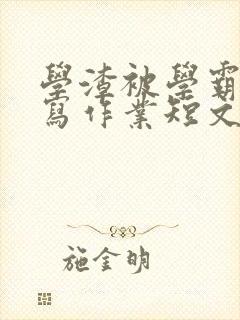 學渣被學霸
寫作業短文
施金明